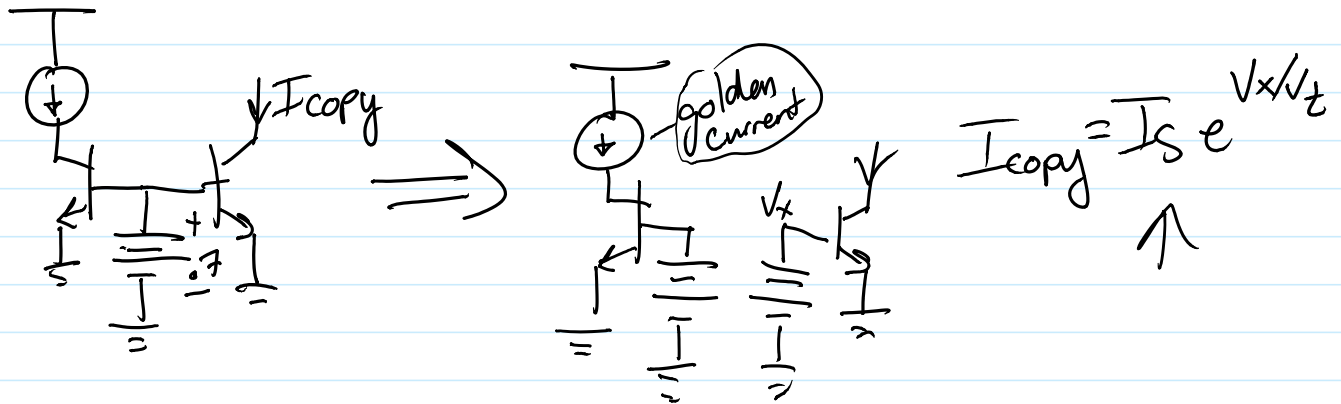 Icopy
+
.7
-
golden
current
Vx
Icopy = Is e^Vx/Vt